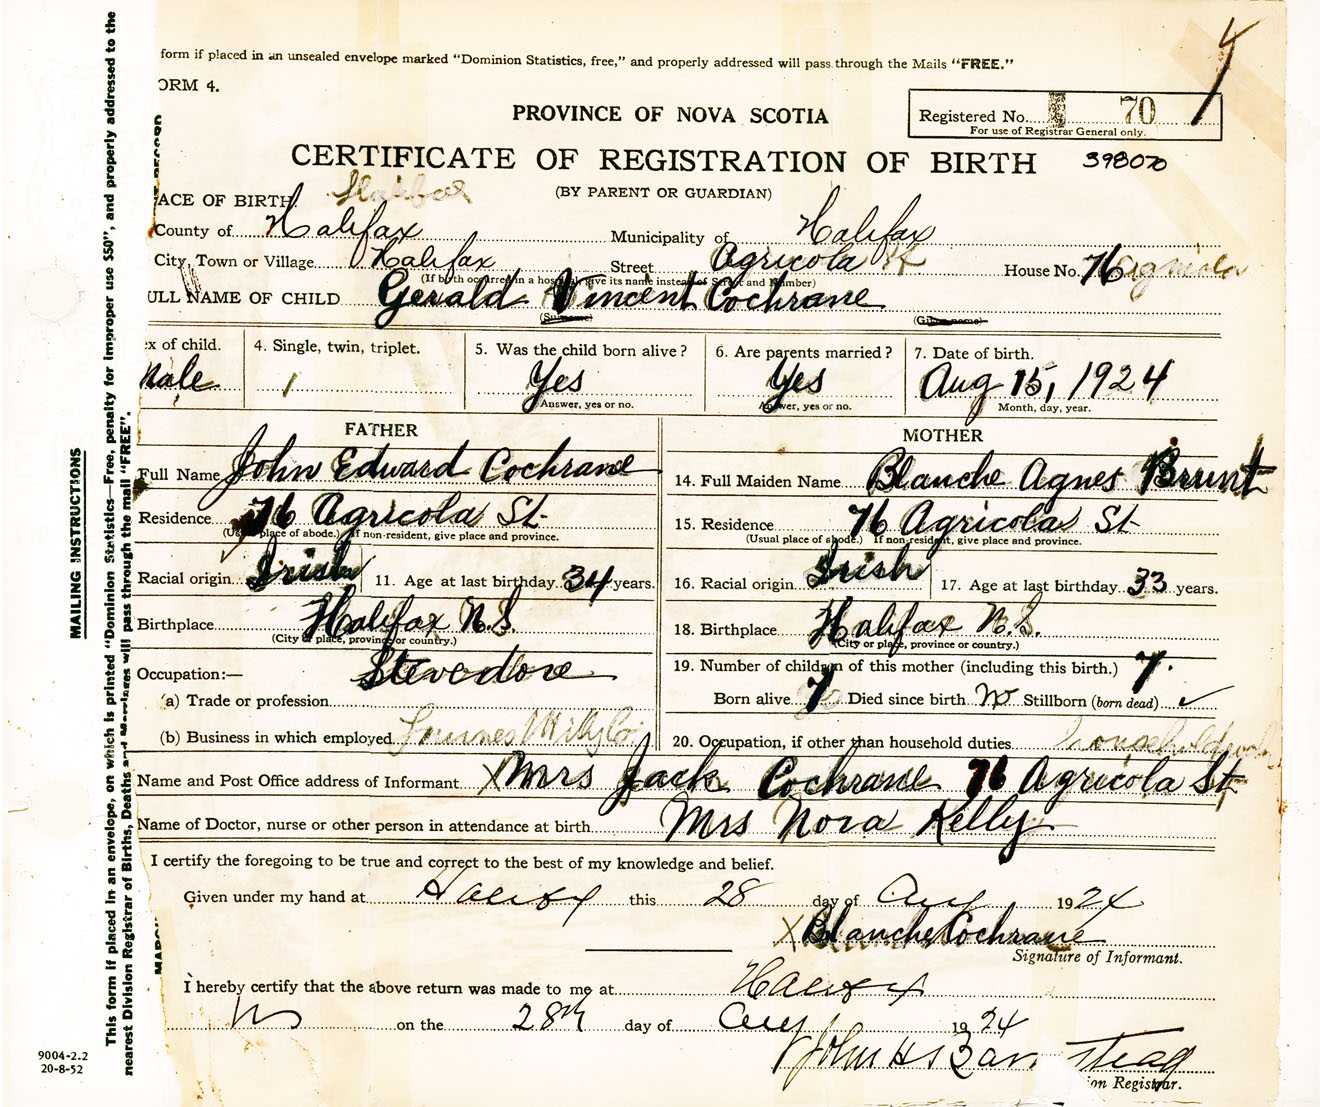 form if placed in an unsealed envelope marked "Dominion Statistics, free," and properly addressed will pass through the Mails "FREE."
ORM 4.
PROVINCE OF NOVA SCOTIA
Registered No. 70
For use of Registrar General only.
CERTIFICATE OF REGISTRATION OF BIRTH 398070
(BY PARENT OR GUARDIAN)
ACE OF BIRTH
County of Halifax Municipality of Halifax
City, Town or Village Halifax Street Agricola St House No. 76 Agricola
(If birth occurred in a hospital, give its name instead of Street and Number)
ULL NAME OF CHILD Gerald Vincent Cochrane
(Surname) (Given name)
ex of child. 4. Single, twin, triplet. 5. Was the child born alive? 6. Are parents married? 7. Date of birth.
Male 1 Yes Yes Aug 15, 1924
Answer, yes or no. Answer, yes or no. Month, day, year.
FATHER MOTHER
Full Name John Edward Cochrane 14. Full Maiden Name Blanche Agnes Brunt
Residence 76 Agricola St 15. Residence 76 Agricola St
(Usual place of abode.) If non-resident, give place and province. (Usual place of abode.) If non-resident, give place and province.
Racial origin Irish 11. Age at last birthday 34 years. 16. Racial origin Irish 17. Age at last birthday 33 years.
Birthplace Halifax N.S. 18. Birthplace Halifax N.S.
(City or place, province or country.) (City or place, province or country.)
Occupation:— Stevedore 19. Number of children of this mother (including this birth.) 7.
(a) Trade or profession Born alive 7 Died since birth No Stillborn (born dead) ✓
(b) Business in which employed 20. Occupation, if other than household duties
Name and Post Office address of Informant X Mrs Jack Cochrane 76 Agricola St
Name of Doctor, nurse or other person in attendance at birth Mrs Nora Kelly
I certify the foregoing to be true and correct to the best of my knowledge and belief.
Given under my hand at Halifax this 28 day of Aug 1924
X Blanche Cochrane
Signature of Informant.
I hereby certify that the above return was made to me at Halifax
NS on the 28th day of Aug 1924
John H S
ion Registrar.
MAILING INSTRUCTIONS
This form if placed in an envelope, on which is printed "Dominion Statistics—Free, penalty for improper use $50", and properly addressed to the
nearest Division Registrar of Births, Deaths and Marriages will pass through the mail "FREE".
9004-2.2
20-8-52